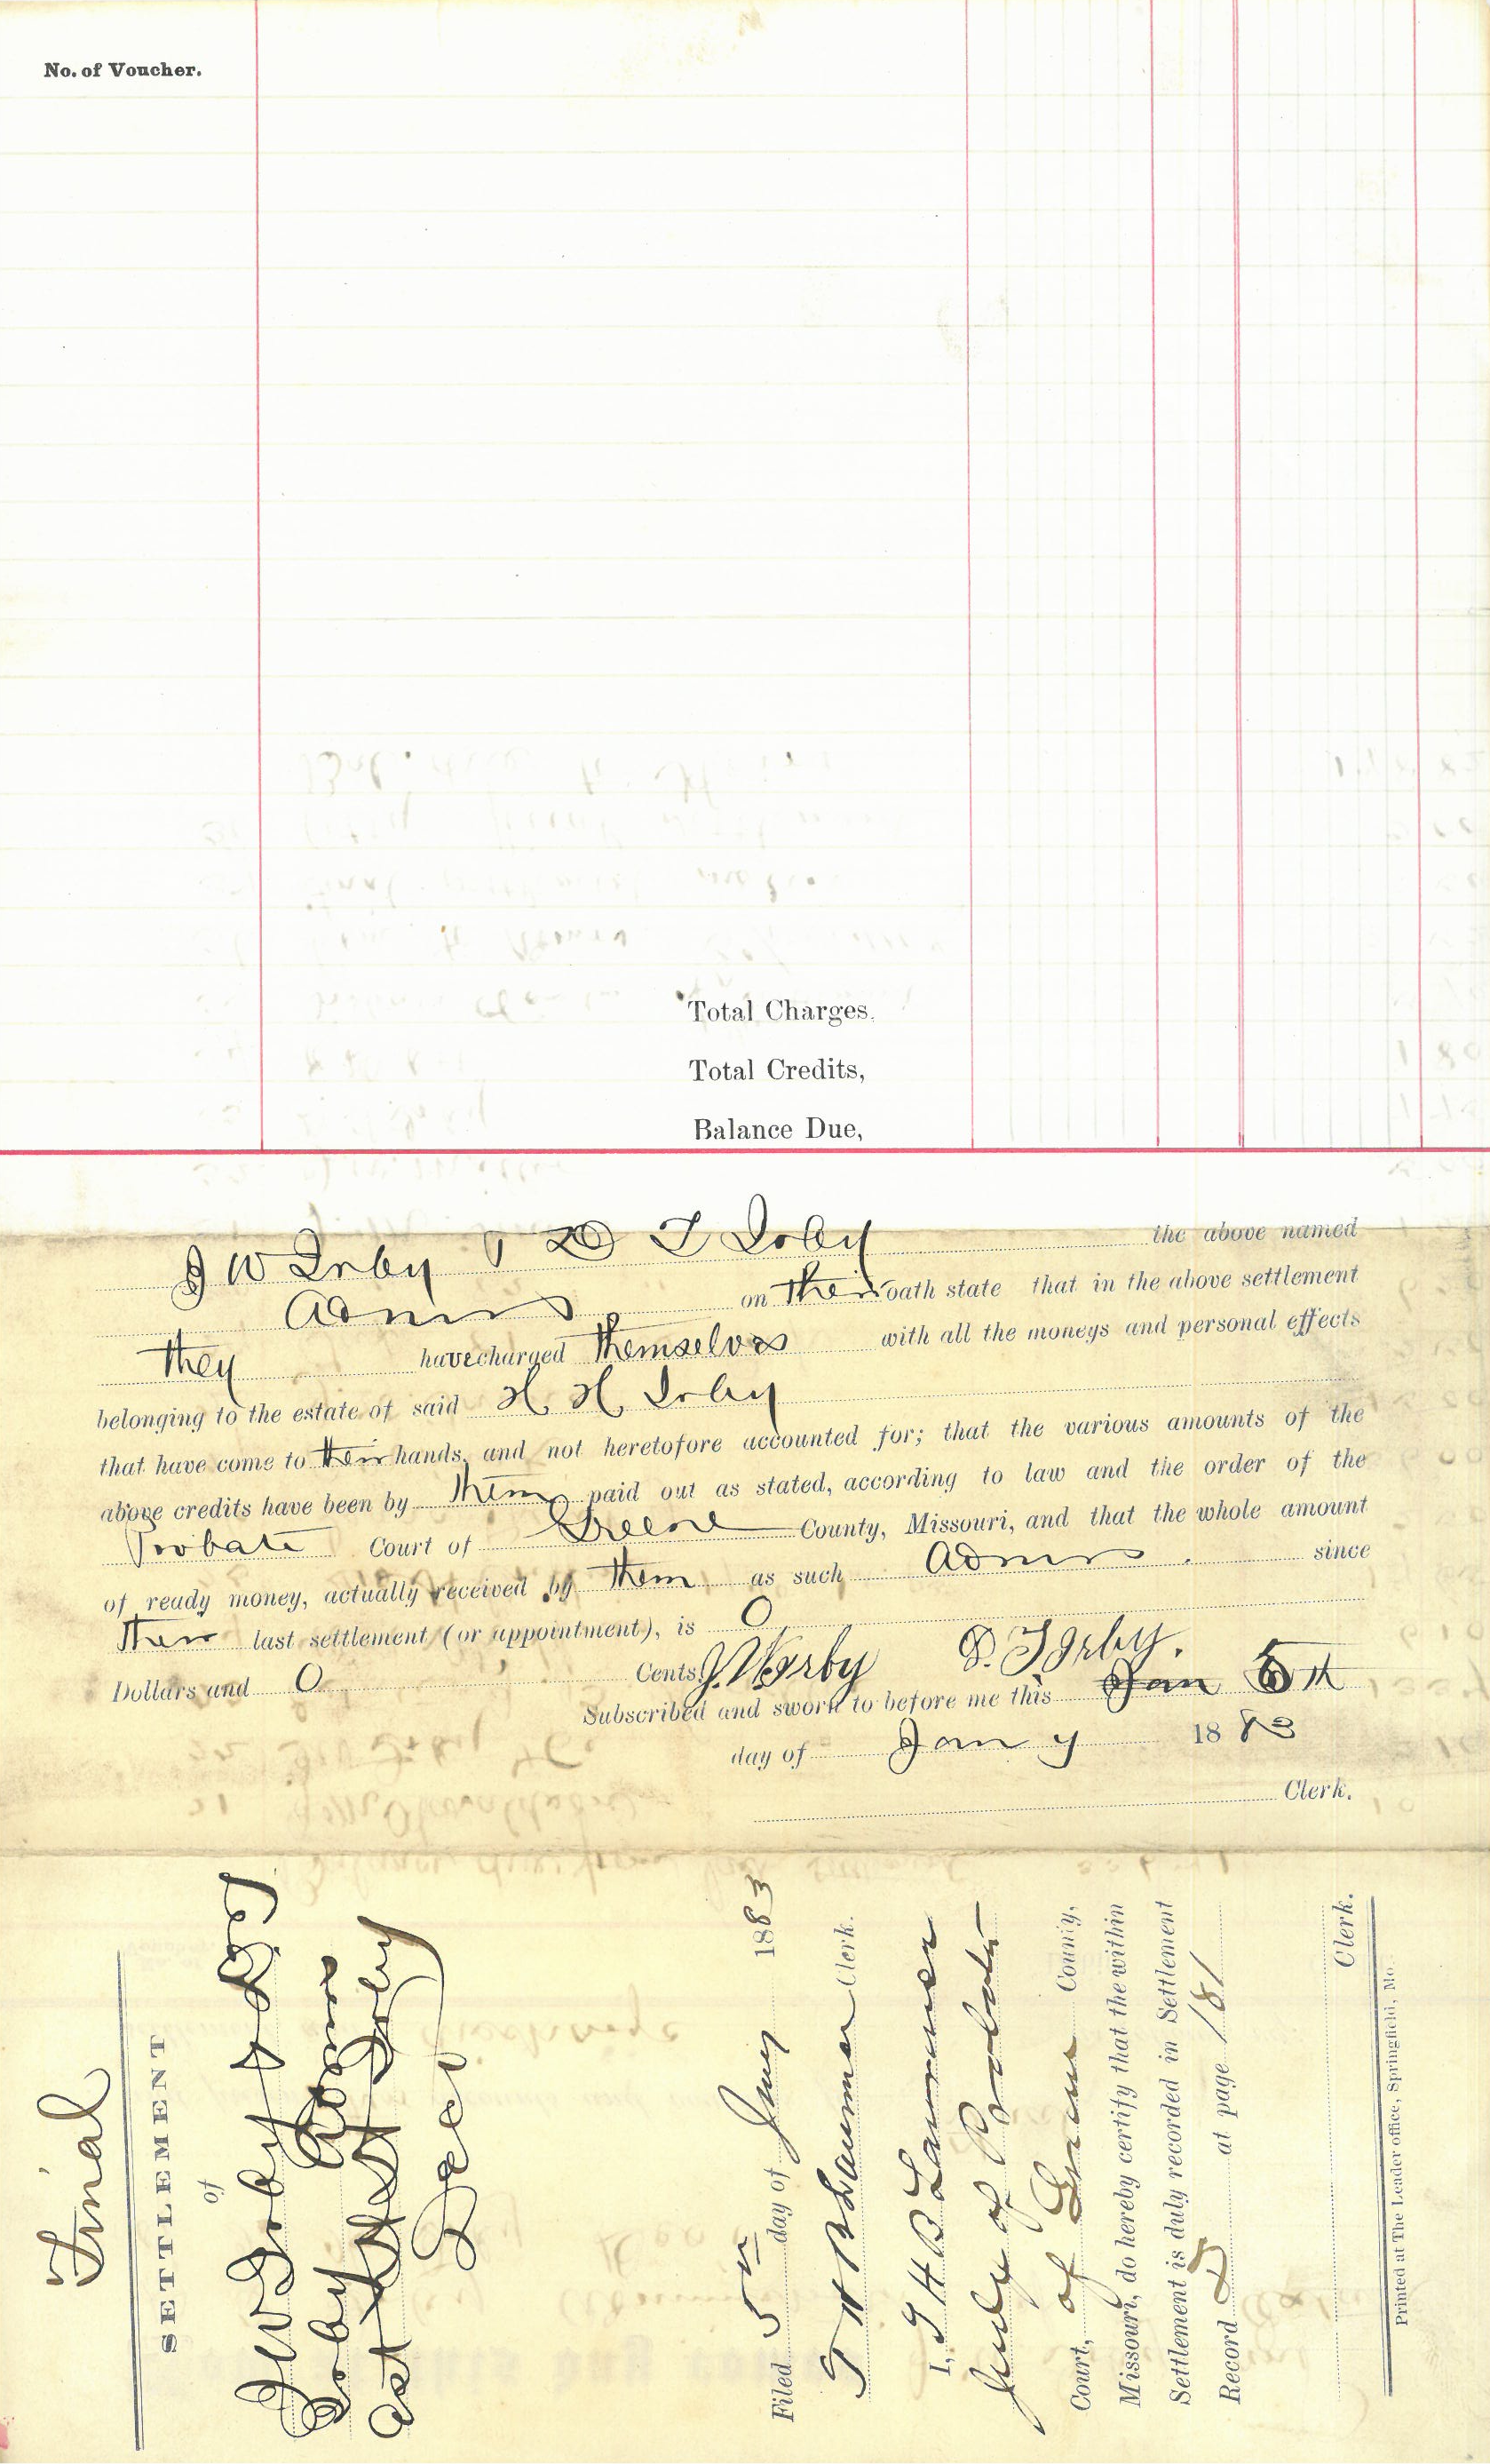 No. of Voucher.
Total Charges.
Total Credits,
Balance Due,
J W Irby & D T Irby the above named
Admrs on their oath state that in the above settlement
they have charged themselves with all the moneys and personal effects
belonging to the estate of said H. H. Irby
that have come to their hands, and not heretofore accounted for; that the various amounts of the
above credits have been by them paid out as stated, according to law and the order of the
Probate Court of Greene County, Missouri, and that the whole amount
of ready money, actually received by them as such Admrs since
their last settlement (or appointment), is 0
Dollars and 0 Cents. J. W. Irby D. T. Irby.
Subscribed and sworn to before me this Jan 5th
day of Jany 1883
Clerk.
Final
SETTLEMENT
of
J W Irby & D T
Irby Admrs
Est H H Irby
Decd
Filed 5th day of Jany 1883
T H B Lawrence Clerk.
I, T H B Lawrence
Judge of Probate
Court, of Greene County,
Missouri, do hereby certify that the within
Settlement is duly recorded in Settlement
Record D at page 181
Clerk.
Printed at The Leader office, Springfield, Mo.